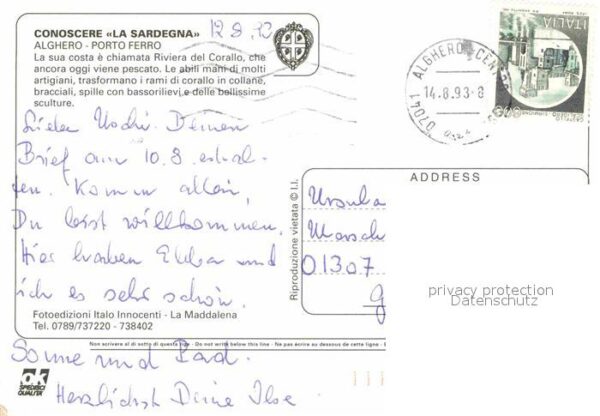 12.8.93
CONOSCERE «LA SARDEGNA»
ALGHERO - PORTO FERRO
La sua costa è chiamata Riviera del Corallo, che
ancora oggi viene pescato. Le abili mani di molti
artigiani, trasformano i rami di corallo in collane,
bracciali, spille con bassorilievi e delle bellissime
sculture.
Liebe Uschi. Deinen
Brief am 10.8. erhal-
ten. Komm allein,
Du bist willkommen.
Hier haben und
ich es sehr schön.
Fotoedizioni Italo Innocenti - La Maddalena
Tel. 0789/737220 - 738402
Non scrivere al di sotto di questa riga - Do not write below this line - Ne pas écrire au dessous de cette ligne -
Sonne und Bad.
Herzlichst Deine Ilse
ok
SPEDISCI
QUALITA'
Riproduzione vietata © I.I.
ITALIA
ALGHERO CENTRO
14.8.93-8
07041
ADDRESS
Ursula
01307
privacy protection
Datenschutz